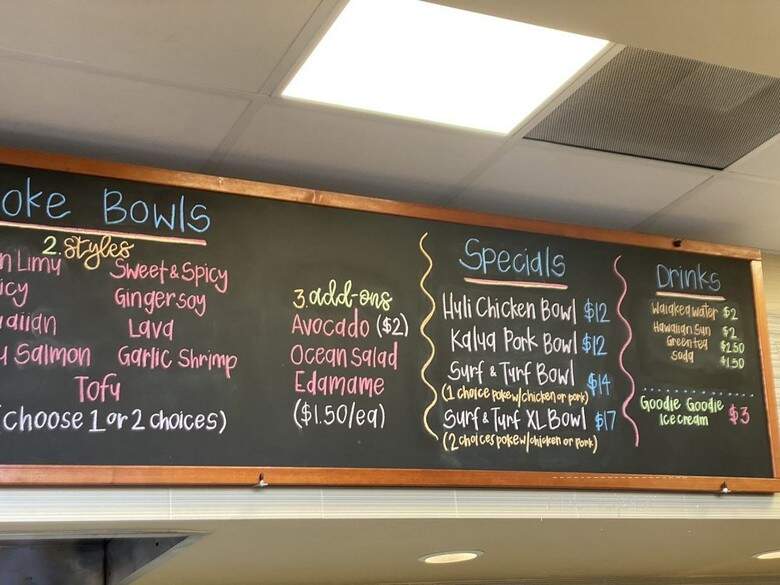 oke Bowls
2. Styles
n Limu
Sweet & Spicy
icy
Ginger soy
aiian
Lava
Salmon
Garlic Shrimp
Tofu
(choose 1 or 2 choices)
3. add-ons
Avocado ($2)
Ocean Salad
Edamame
($1.50/ea)
Specials
Huli Chicken Bowl $12
Kalua Pork Bowl $12
Surf & Turf Bowl $14
(1 choice poke w/chicken or pork)
Surf & Turf XL Bowl $17
(2 choices poke w/chicken or pork)
Drinks
Waiakea water $2
Hawaiian Sun $2
Green tea $2.50
Soda $1.50
Goodie Goodie
Ice cream $3